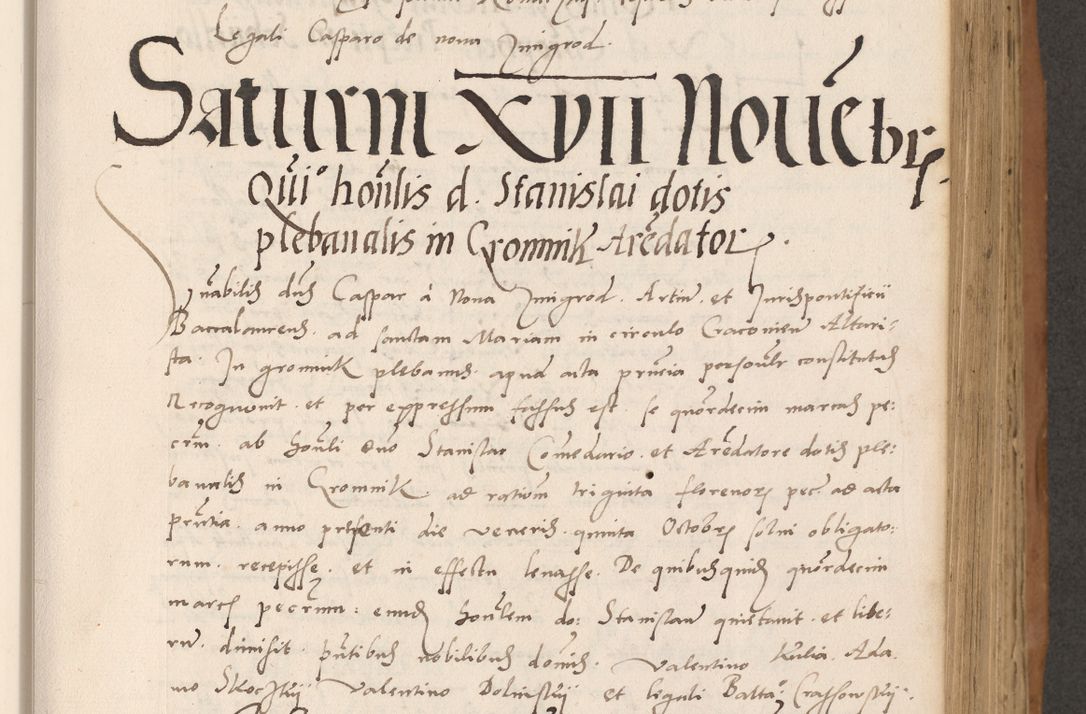 Legali Casparo de nova Zmigrod.
Saturni XVII Novēbrꝭ.
Quiō honīlis d. Stanislai dotis
plebanalis in Gromnik Arēdatorꝭ.
nabilis dnꝰ Caspar à Nova Zmigrod. Artiū. et Iurispontificii
Baccalaureus. ad sanctam Mariam in circulo Cracovien̄ Altari-
sta. In gromnik plebanus. apud acta pn̄tia personlr constitutus
Recognovit. et per expressum fassus est. se quordecim marcas pe:
crm̄. ab honli dno Stanislao Comedario. et Arēdatore dotis ple:
banalis in Gromnik ad ratiom̄ triginta florenorꝭ pec. ad acta
pn̄tia. anno presenti die veneris. quinta Octobrꝭ solvi obligato:
rum. recepisse. et in effectu levasse. De quibusquidꝭ quordecim
marcꝭ pecrum: eundꝭ honlem do: Stanislaū quietavit. et libe:
rū. dimisit. pn̄tibus nobilibus domīs. Valentino Kulia. Ada
mo Skocskii Valentino Dolinskii et legali Baltā: Crassowskii.